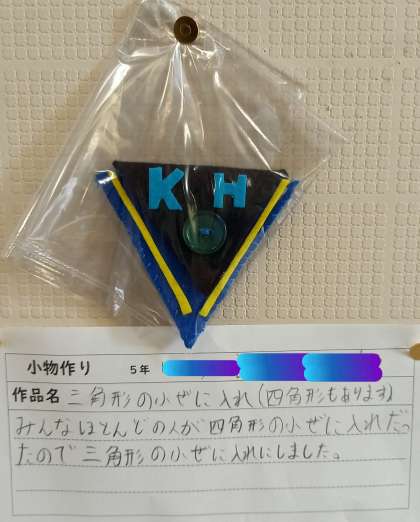 K H
小物作り 5年
作品名 三角形の小ぜに入れ(四角形もあります)
みんなほとんどの人が四角形の小ぜに入れだっ
たので三角形の小ぜに入れにしました。